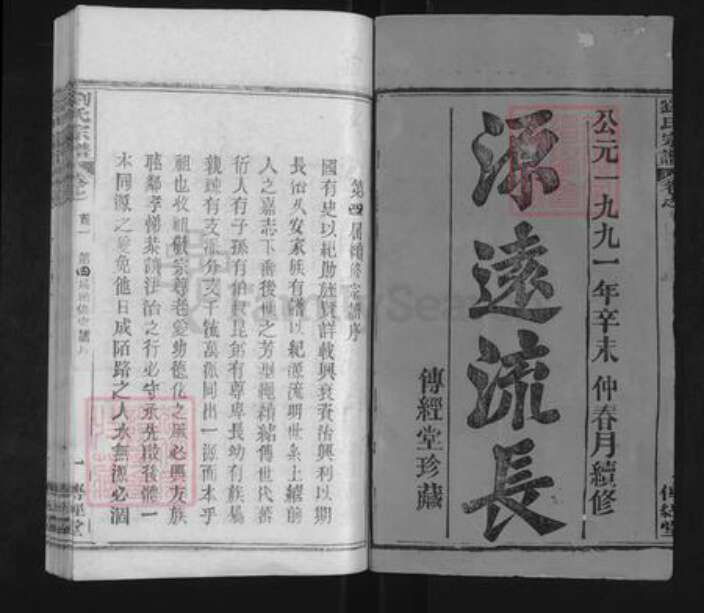 公元一九九一年辛未仲春月續修
源遠流長
傳經堂珍藏
劉氏宗譜
第四屆續修宗譜序
國有史以紀勋莚賢詳載興衰資治興利以期
長治久安家族有譜以紀源流明世系上續前
人之嘉志下垂後
衍人有子孫有伯叔昆弟有尊卑長幼有族屬
親疎有支派分支千枝萬派同出一源而本乎
祖也敬祖敬宗尊老愛幼德化之風必興友族
睦鄰孝悌
法治之行必守承先啟後體一
本同源之
免他日成陌路之人水無源必涸
劉氏宗譜
卷之
首一
第四屆續修宗譜序
一
傳經堂